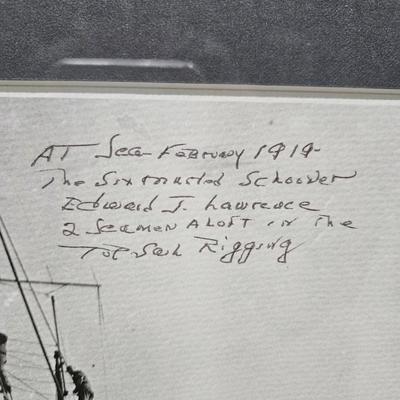 AT Sea February 1919
The Six masted Schooner
Edward J. Lawrence
2 Seamen ALOFT in The
Top Sail Rigging